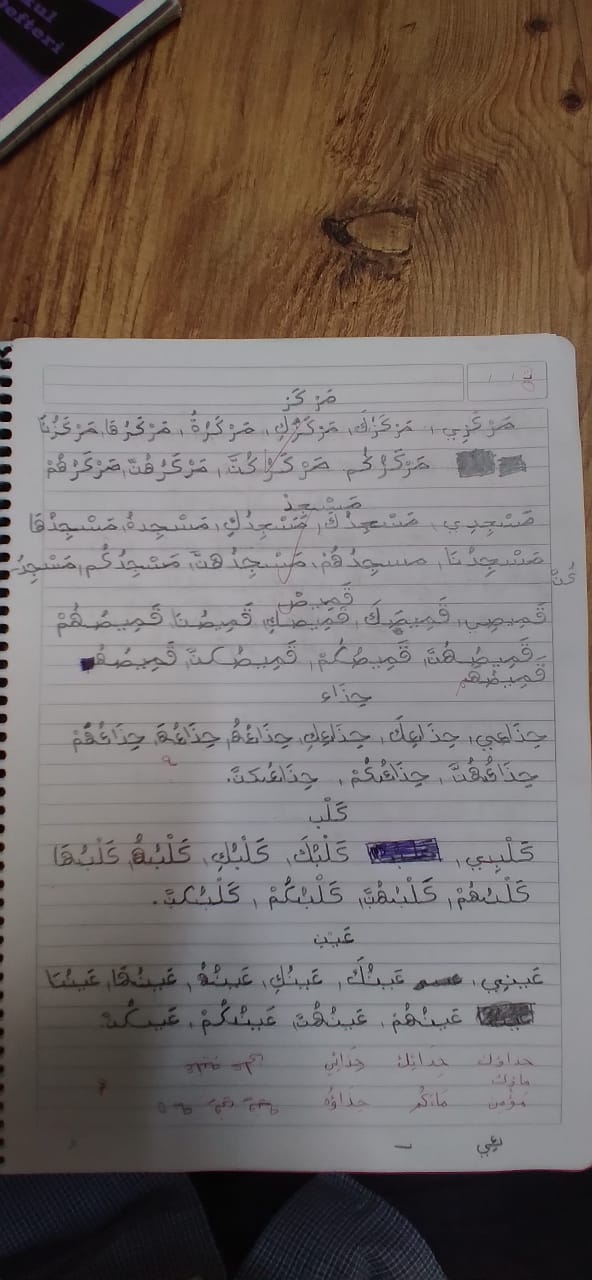 kul
Defteri
مَرْكَز
مَرْكَزِي، مَرْكَزُكَ، مَرْكَزُكِ، مَرْكَزُهُ، مَرْكَزُهَا، مَرْكَزُنَا
مَرْكَزُكُم، مَرْكَزُكُنَّ، مَرْكَزُهُنَّ، مَرْكَزُهُمْ
مَسْجِدْ
مَسْجِدِي، مَسْجِدُكَ، مَسْجِدُكِ، مَسْجِدهُ، مَسْجِدُهَا
مَسْجِدُنَا، مسجِدُهُمْ، مَسْجِدُهنَّ، مَسْجِدُكُم، مَسْجِدُ
كُنَّ
قَمِيصْ
قَمِيصِي، قَمِيصُكَ، قَمِيصُكِ، قَمِيصُنَا، قَمِيصُهُمْ
قَمِيصُهُنَّ، قَمِيصُكُمْ، قَمِيصُكنَّ، قَمِيصُهُ
قَمِيصُهُم
حِذَاء
حِذَاءِي، حِذَاءِكَ، حِذَاءِكِ، حِذَاءُهُ، حِذَاءُهَ، حِذَاءُهُمْ
حِذَاءُهُنَّ، حِذَاءُكُمْ، حِذَاءُكنَّ.
كَلْب
كَلْبِي، كَلْبُكَ، كَلْبُكِ، كَلْبُهُ، كَلْبُهَا
كَلْبُهُمْ، كَلْبُهُنَّ، كَلْبُكُمْ، كَلْبُكنَّ.
عَيْن
عَينِي، عَينُكَ، عَينُكِ، عَينُهُ، عَينُهَا، عَينُنَا
عَينُهُمْ، عَينُهُنَّ، عَينُكُمْ، عَينُكُنَّ
حذاؤك حِذَائِكَ حِذَائِي
مؤمن حِذَاؤُه